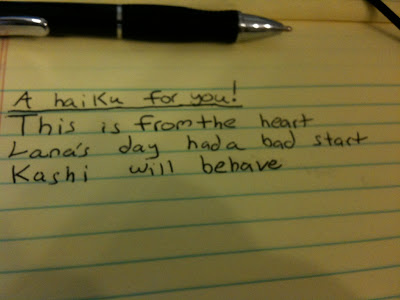 A haiku for you!
This is from the heart
Lana's day had a bad start
Kashi will behave